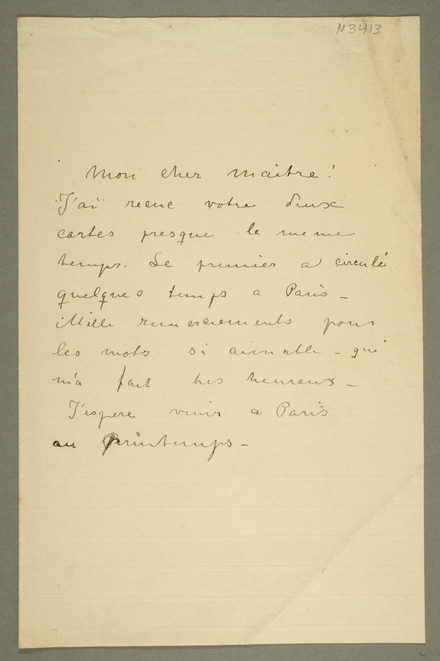 N3413
Mon cher maitre!
J'ai recue votre deux
cartes presque le meme
temps. Le premier a circulé
quelques temps a Paris –
Mille remerciements pour
les mots si aimable – qui
m'a fait tres heureux –
J'espere venir a Paris
au Printemps –